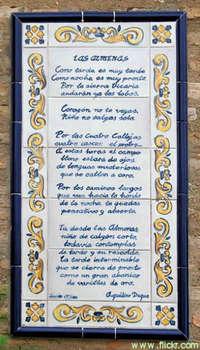 LAS ALMENAS
Como tarda es muy tarde
Como noche es muy pronto
Por la sierra Vicaria
andarán ya los lobos.
Corazón no te vayas,
Niño no salgas solo.
Por las Cuatro Callejas
cuatro cascos: el potro.
A estas horas el campo
lleno estará de ojos
de lenguas misteriosas
que se callan a coro.
Por los caminos largos
que van hacia lo hondo
de la noche te quedas
pensativo y absorto.
Tú desde las Almenas
niño de calzón corto,
todavía contemplas
de tarde y en rescoldo
la tarde interminable
que se cierra de pronto
como un gran abanico
de varillas de oro.
Aquilino Duque
www.flickr.com